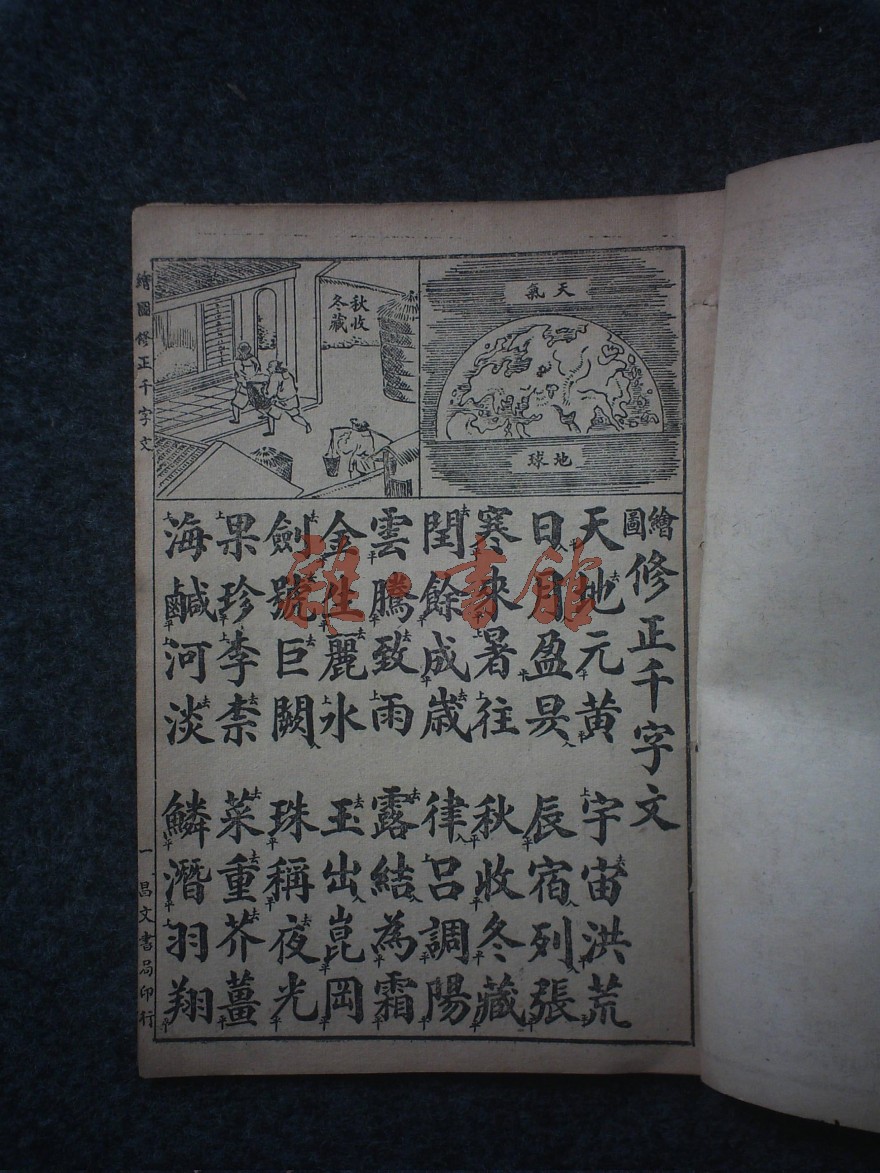 天氣
地球
秋收
冬藏
繪圖修正千字文
天地元黃 宇宙洪荒
日月盈昃 辰宿列張
寒來暑往 秋收冬藏
閏餘成歲 律呂調陽
雲騰致雨 露結為霜
金生麗水 玉出崑岡
劍號巨闕 珠稱夜光
果珍李柰 菜重芥薑
海鹹河淡 鱗潛羽翔
繪圖修正千字文
一
昌文書局印行
雜·書館